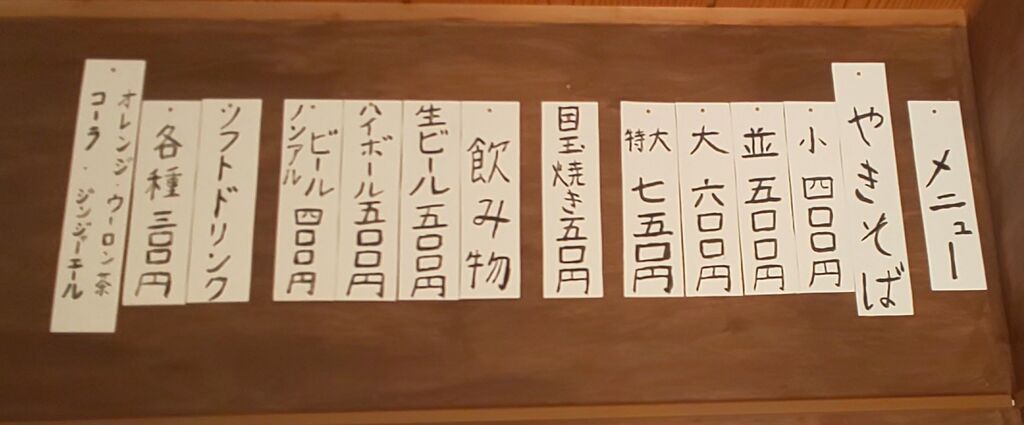 メニュー
やきそば
小 四〇〇円
並 五〇〇円
大 六〇〇円
特大 七五〇円
目玉焼き五〇円
飲み物
生ビール五〇〇円
ハイボール五〇〇円
ノンアルビール 四〇〇円
ソフトドリンク
各種三〇〇円
オレンジ・ウーロン茶
コーラ・ジンジャーエール